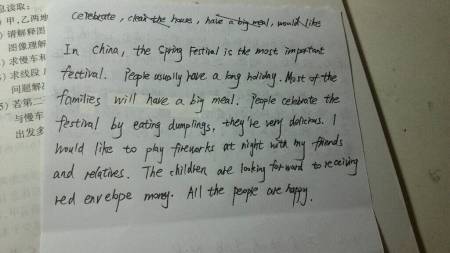 息读取:
), 甲,乙两地
) 请解释图
图像理解
) 求慢车和
) 求线段
问题解
5) 若第二
与慢车
出发多
celebrate, clean the house, have a big meal, would like
In china, the Spring Festival is the most important
festival. People usually have a long holiday. Most of the
families will have a big meal. People celebrate the
festival by eating dumplings, they're very delicious. I
would like to play fireworks at night with my friends
and relatives. The children are looking forward to receiving
red envelope money. All the people are happy.